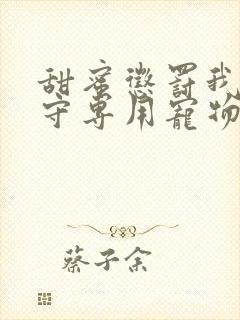 甜蜜懲罰我
守專用寵物
蔡子余